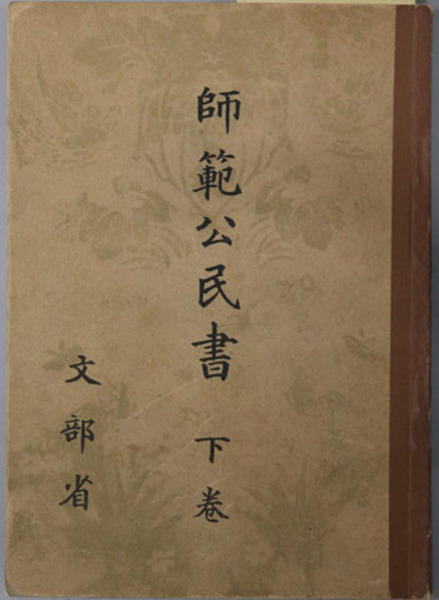 師範公民書 下巻
文部省